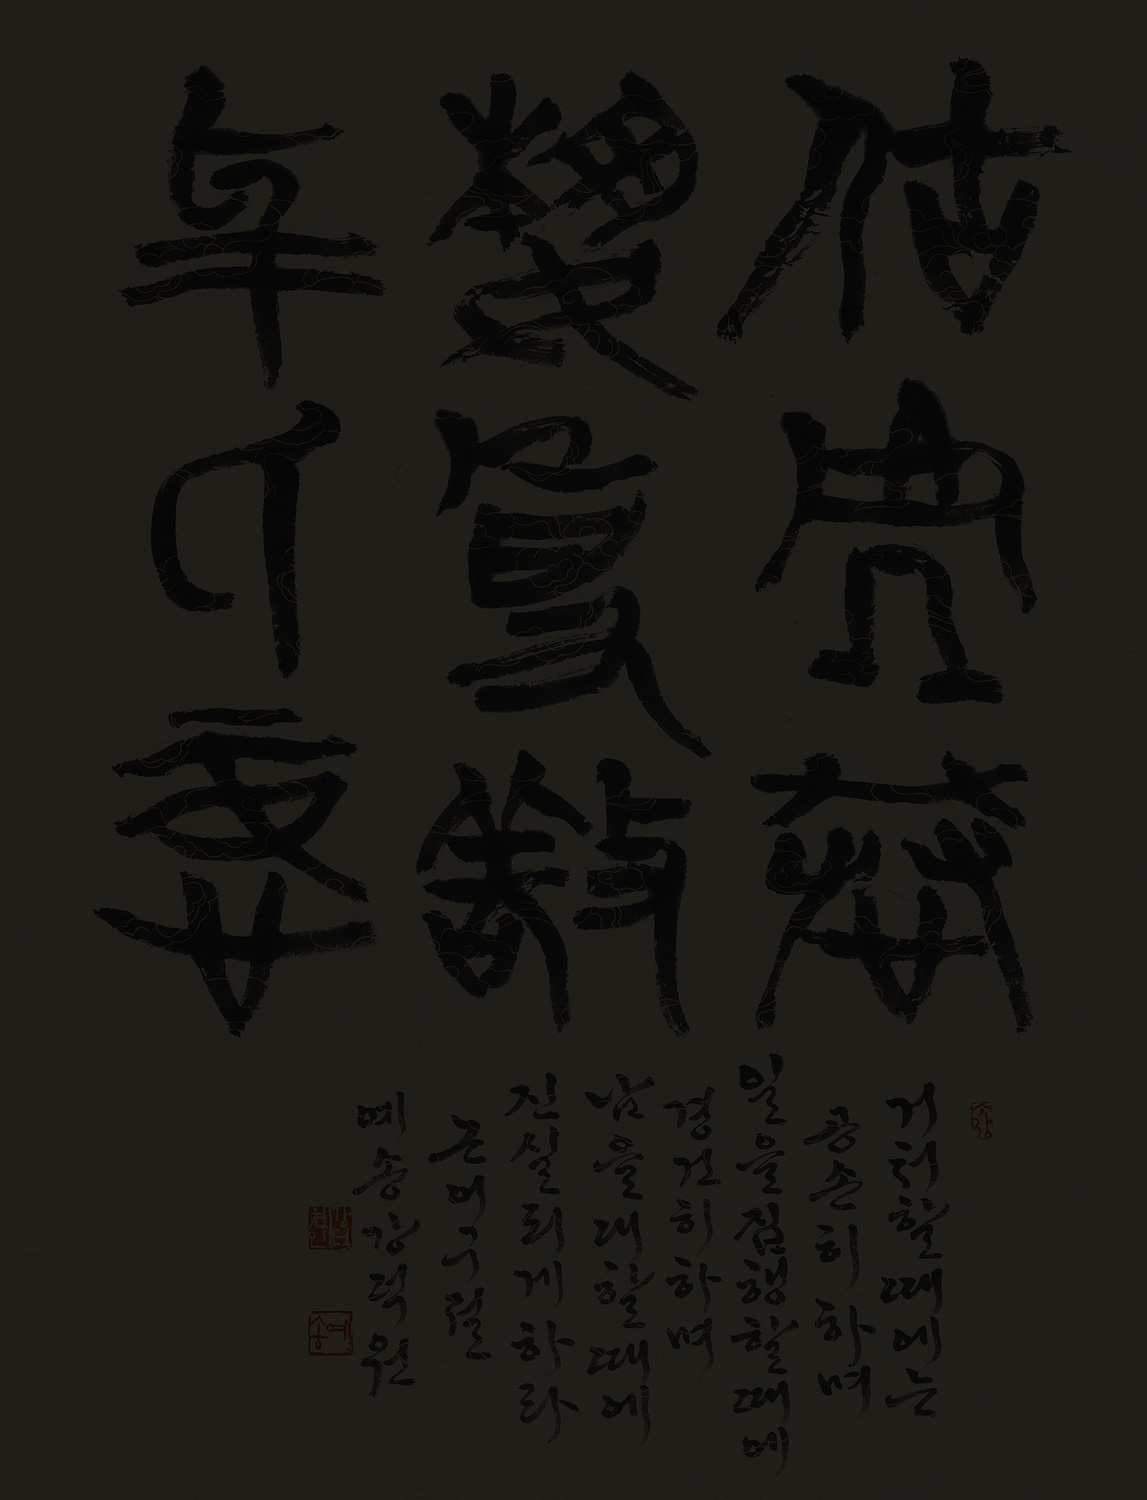 居處恭
執事敬
與人忠
거처할때에는
공손히하며
일을집행할때에
경건히하며
남을대할때에
진실되게하라
논어구절
예송강덕원
예송